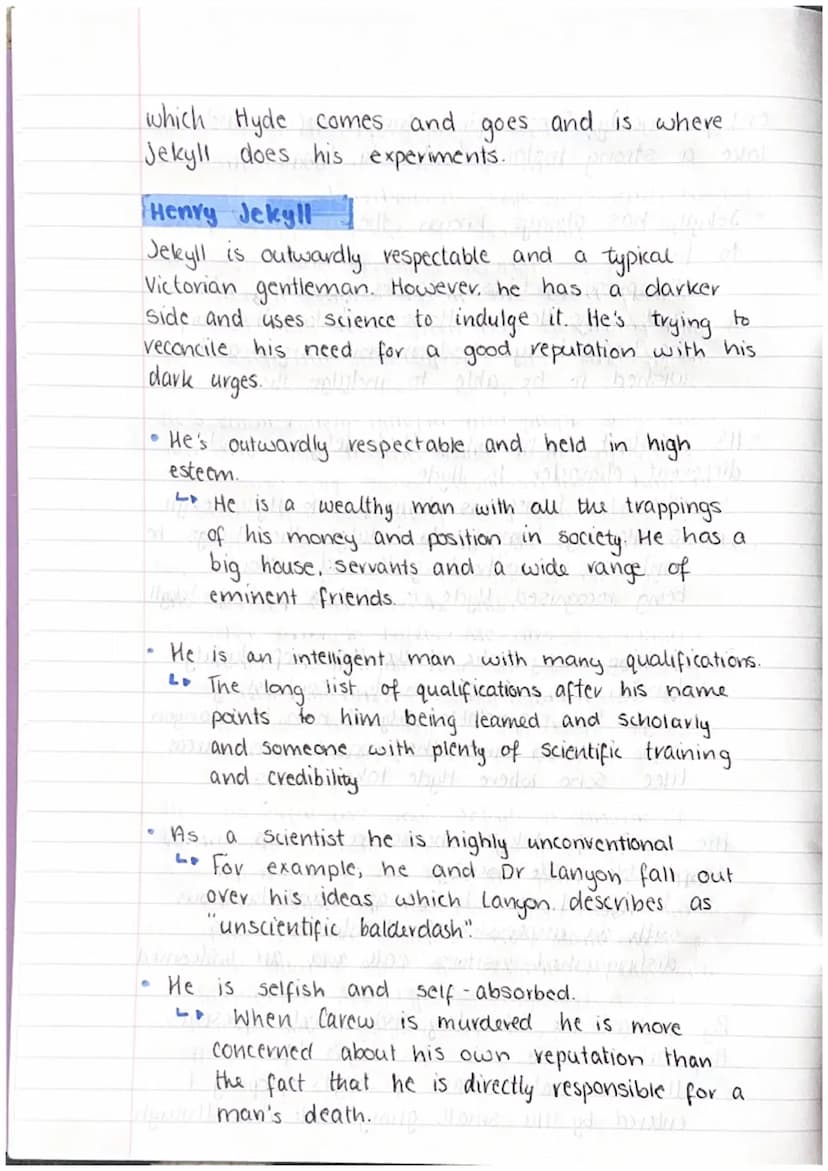 which Hyde comes and goes and is where
Jekyll does his experiments.
Henry Jekyll
Jekyll is outwardly respectable and a typical
Victorian gentleman. However, he has a darker
side and uses science to indulge it. He's trying to
reconcile his need for a good reputation with his
dark urges.
• He's outwardly respectable and held in high
esteem.
↳ He is a wealthy man with all the trappings
of his money and position in society. He has a
big house, servants and a wide range of
eminent friends.
• He is an intelligent man with many qualifications.
↳ The long list of qualifications after his name
points to him being learned and scholarly
and someone with plenty of scientific training
and credibility
• As a scientist he is highly unconventional
↳ For example, he and Dr Lanyon fall out
over his ideas which Lanyon describes as
"unscientific balderdash".
• He is selfish and self-absorbed.
↳ When Carew is murdered he is more
concerned about his own reputation than
the fact that he is directly responsible for a
man's death.